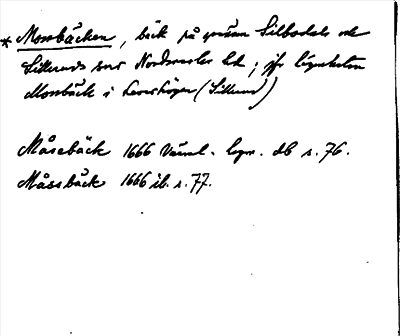 * Mossbäcken, bäck på gränsen Silbodals och
Silleruds snr Nordmarks hd; jfr lägenheten
Mossbäck i Leverhögen (Sillerud)
Måsebäck 1666 Värml. legr. db s. 76.
Måssbäck 1666 ib. s. 77.